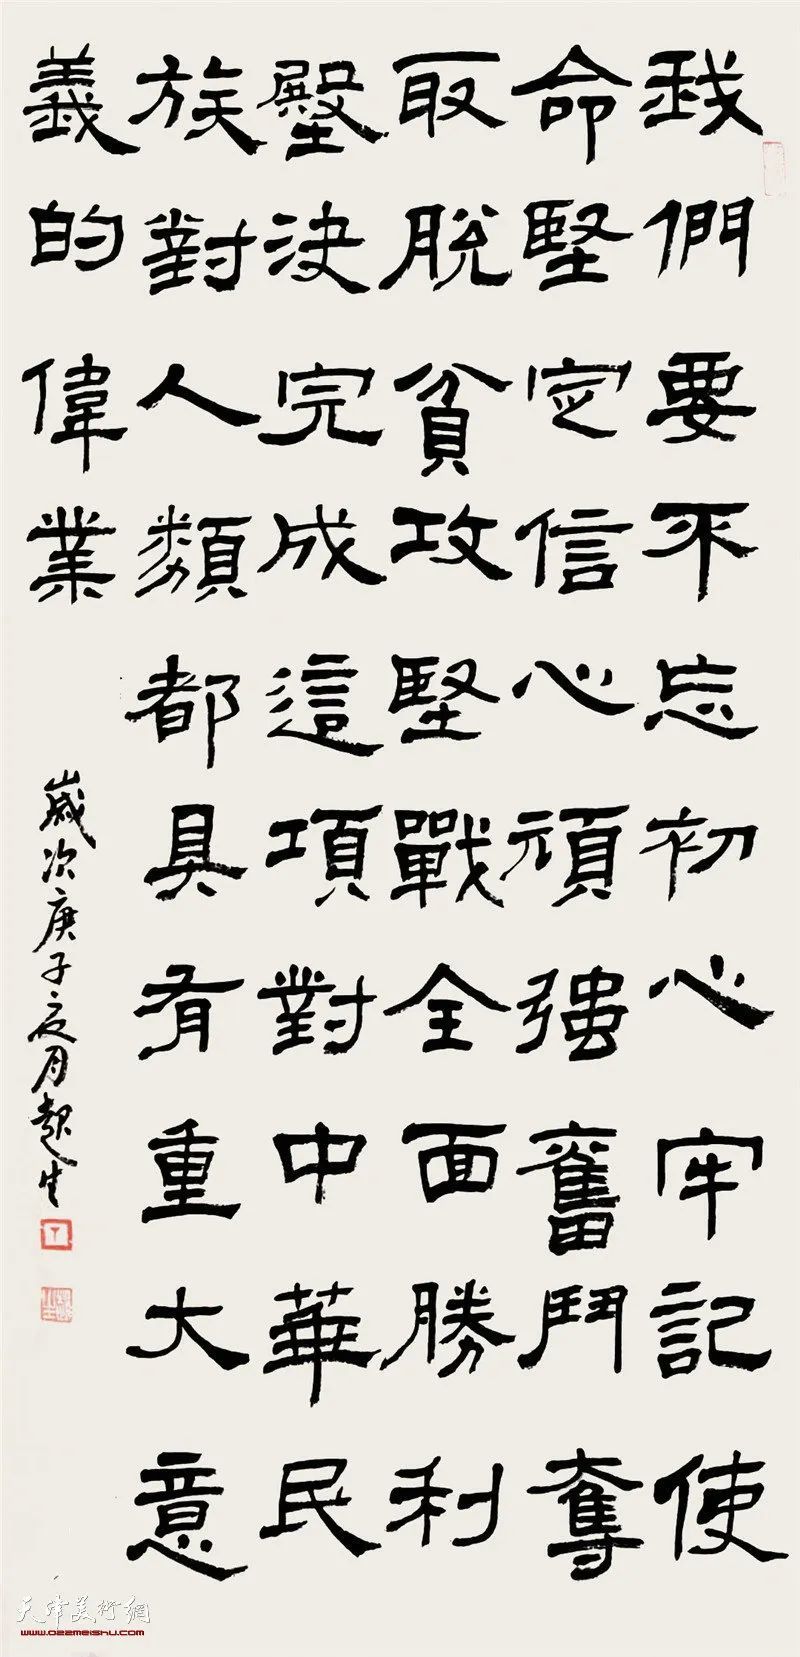 我們要不忘初心牢記使
命堅定信心頑强奮鬥奪
取脫貧攻堅戰全面勝利
堅決完成這項對中華民
族對人類都具有重大意
義的偉業
歲次庚子夏月
天津美術網
www.022meishu.com